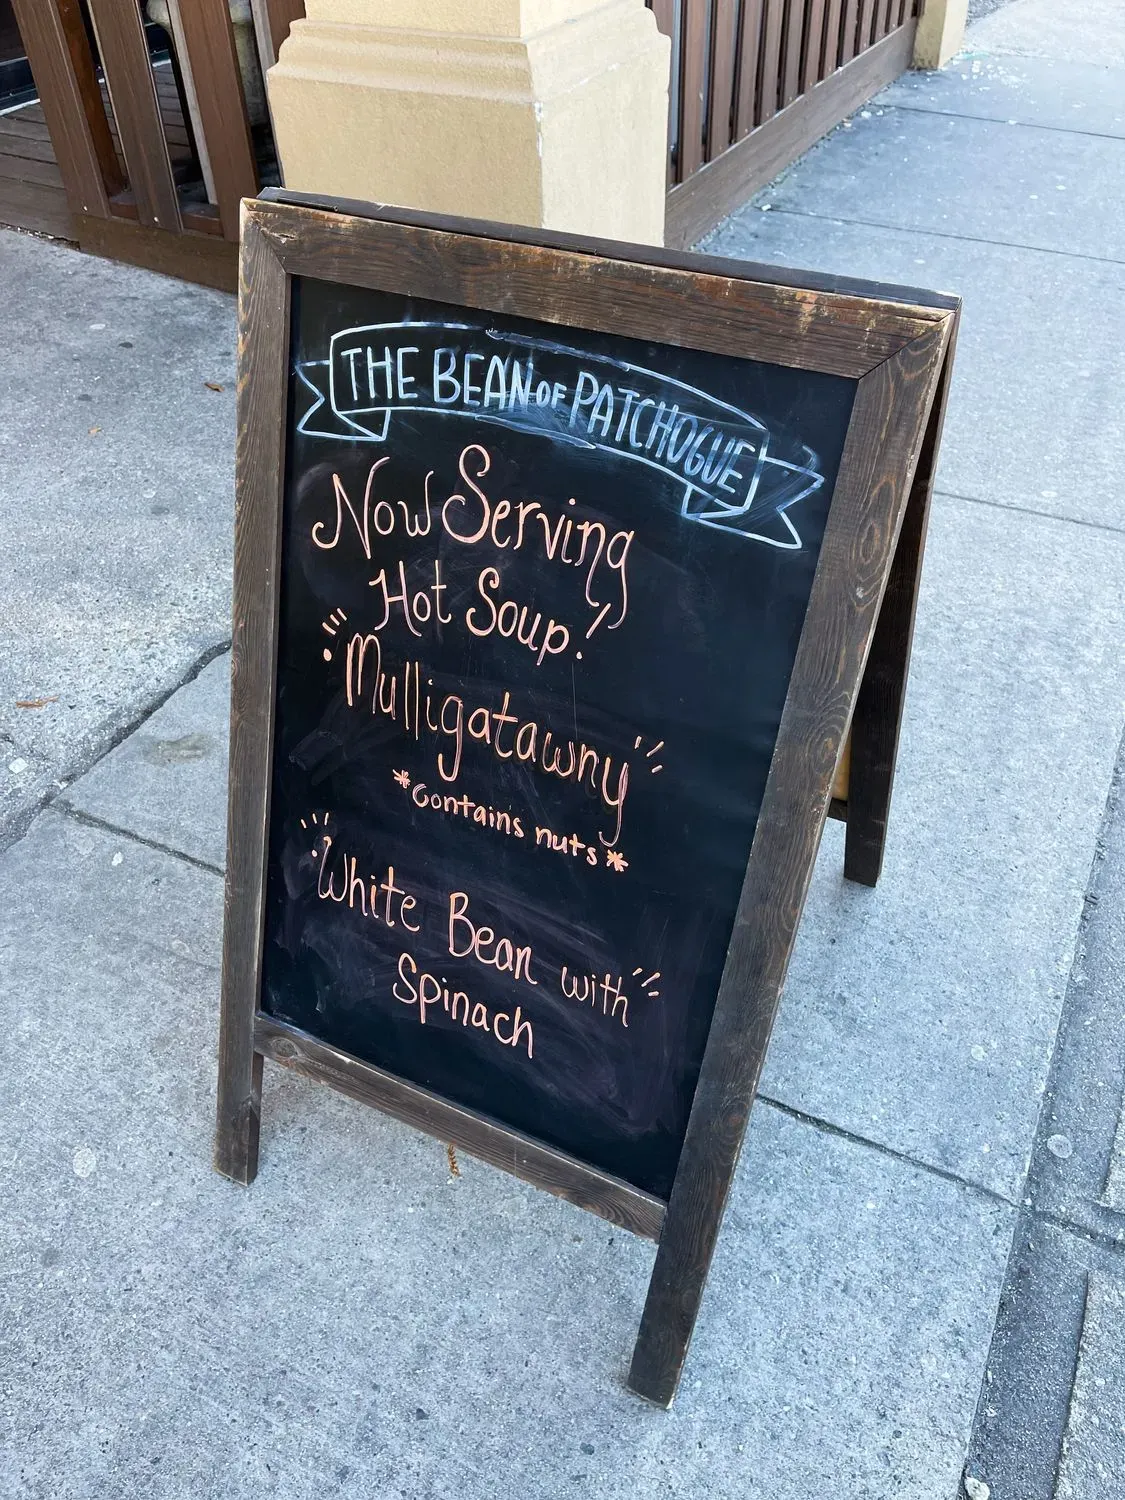 THE BEAN OF PATCHOGUE
Now Serving
Hot Soup!
Mulligatawny
*contains nuts*
White Bean with
Spinach